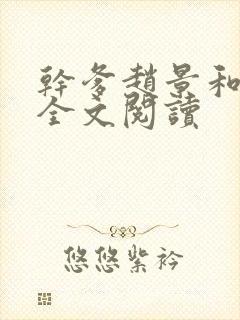 幹爹趙景和
全文閱讀
悠悠紫衿